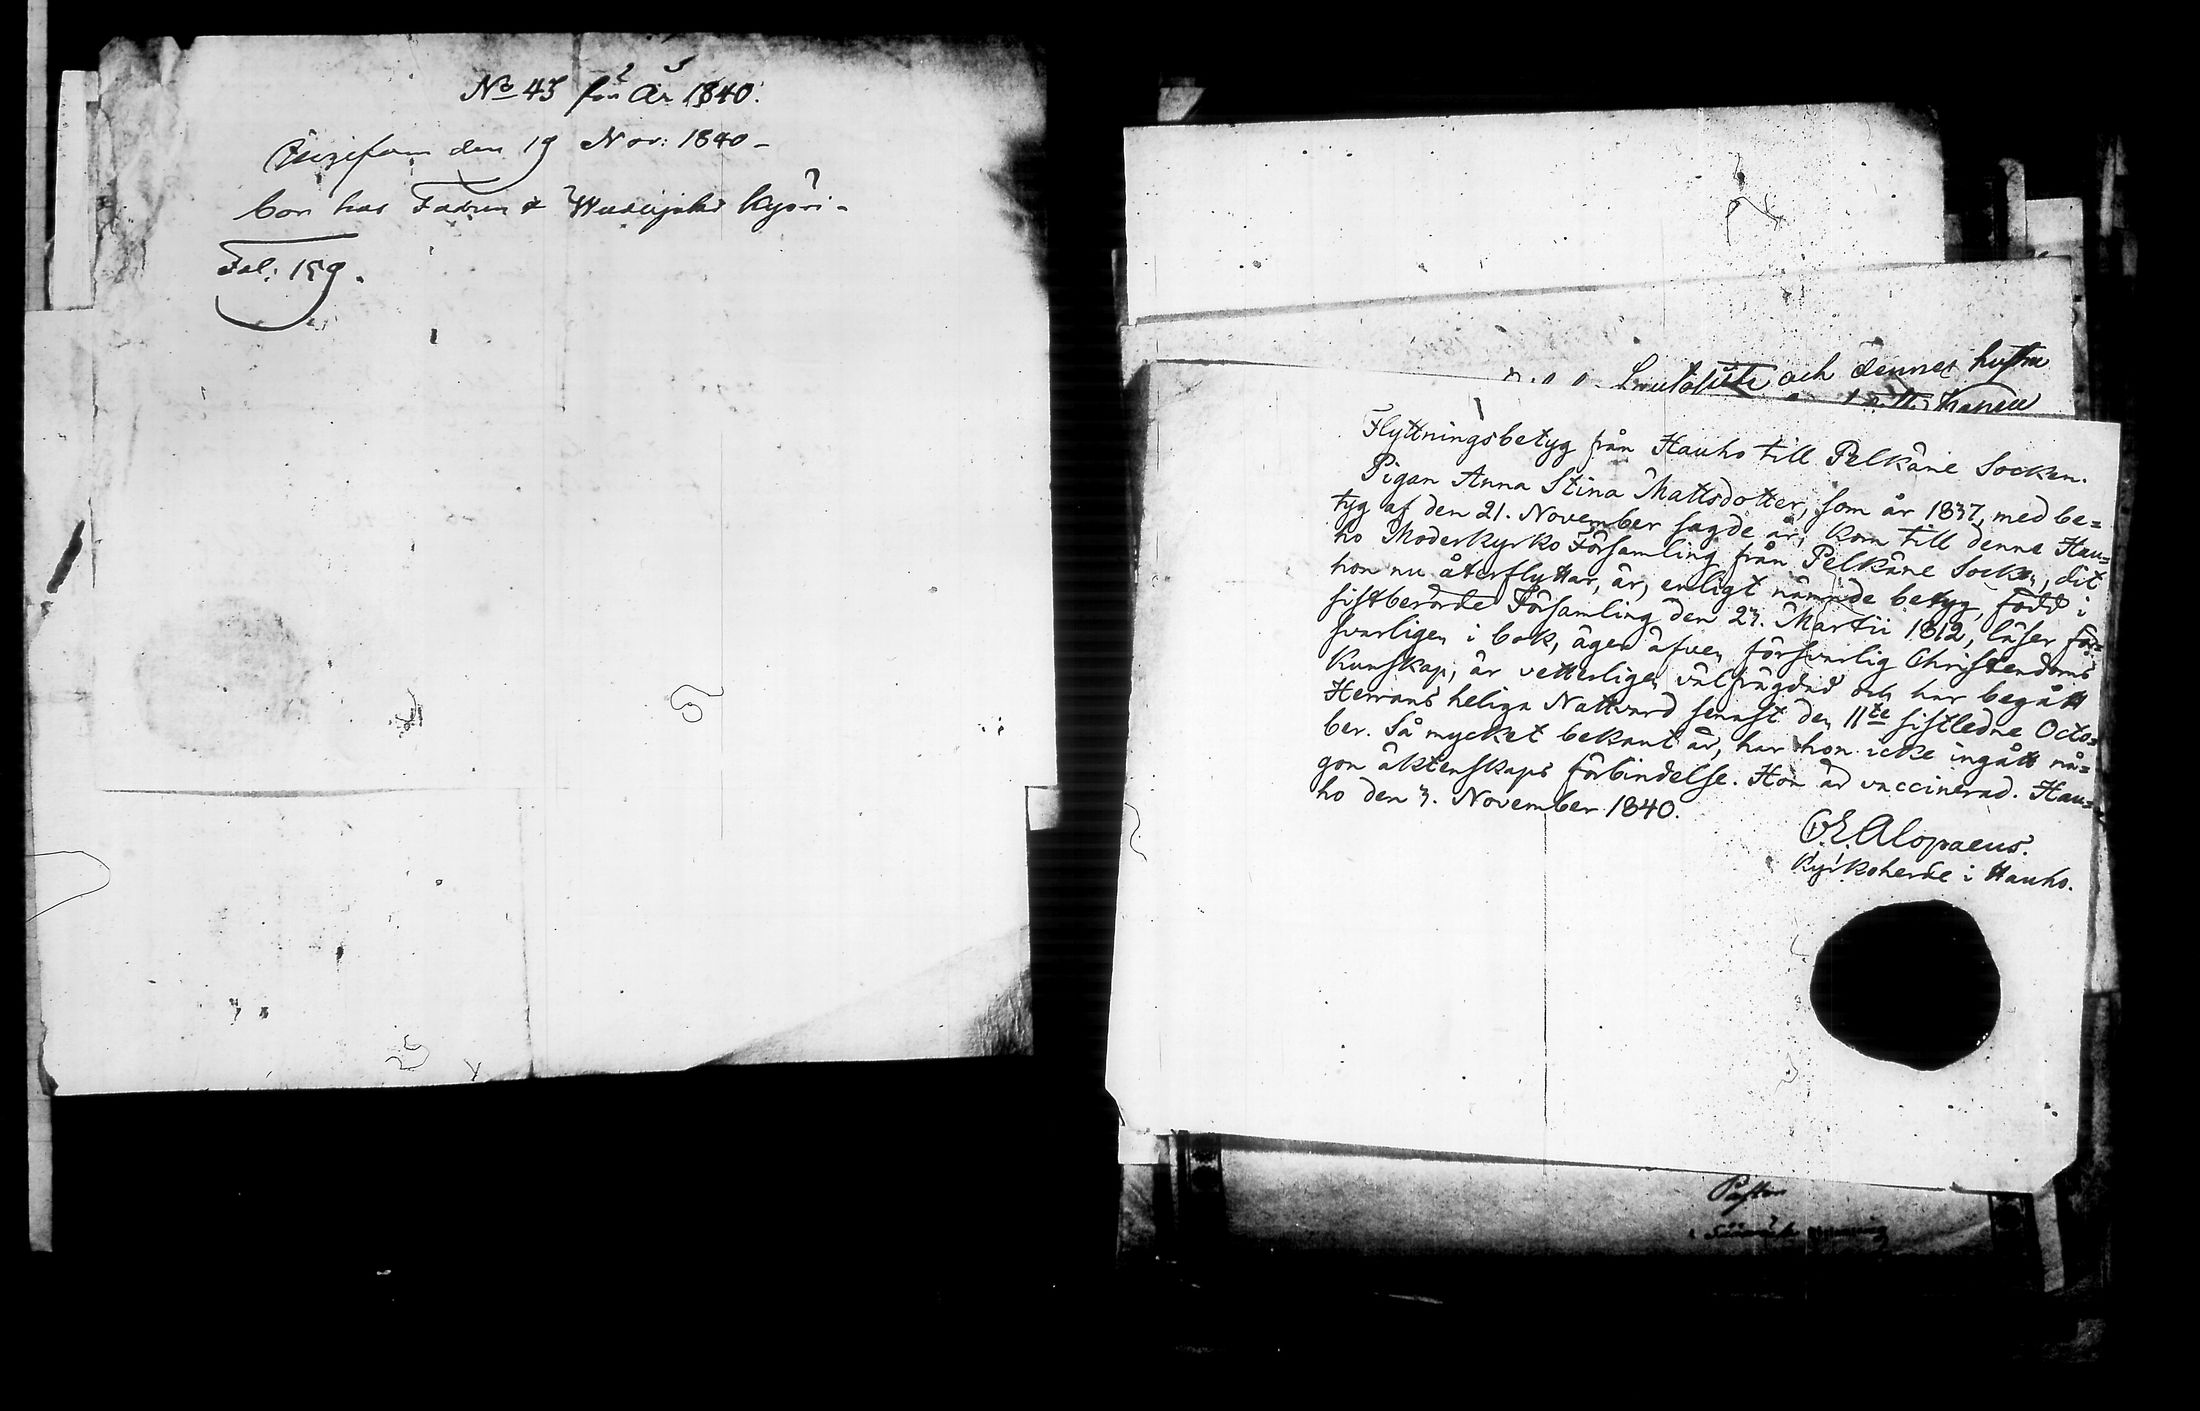 No 43 för År 1840.
den 19 Nov: 1840 –
bor hos Fadren å Kyöri –
Fol: 159.
och dennes hustru
Flyttningsbetyg från Hauho till Pelkäne Socken.
Pigan Anna Stina Mattsdotter, som år 1837, med be=
tyg af den 21. November sagde år, kom till denna Hau=
ho Moderkyrko Församling från Pelkäne Socken, dit
hon nu återflyttar, är, enligt nämnde betyg, född i
sistberörde Församling den 23. Martii 1812, läser för=
svarligen i bok, äger äfven försvarlig Christendoms
Kunskap, är vetterligen välfrägdad och har begått
Herrans heliga Nattvard senast den 11te sistledne Octo=
ber. Så mycket bekant är, har hon icke ingått nå=
gon äktenskaps förbindelse. Hon är vaccinerad. Hau=
ho den 3. November 1840.
Alopaeus.
Kyrkoherde i Hauho.
Pastor